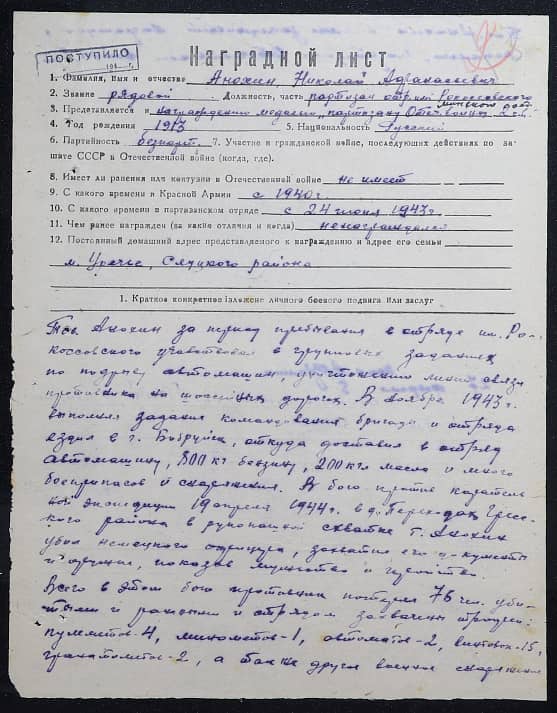 ПОСТУПИЛО
194 г.
Наградной лист
1. Фамилия, имя и отчество Анохин, Николай Афанасьевич
2. Звание рядовой Должность, часть партизан отр. им. Рокоссовского
Минского
3. Представляется к награждению медалью „партизану Отеч. войны" 2 ст.
4. Год рождения 1913 5. Национальность Русский
6. Партийность беспарт. 7. Участие в гражданской войне, последующих действиях по за-
щите СССР в Отечественной войне (когда, где).
8. Имеет ли ранения или контузии в Отечественной войне не имеет
9. С какого времени в Красной Армии с 1940 г
10. С какого времени в партизанском отряде с 24 июня 1943 г
11. Чем ранее награжден (за какие отличия и когда) ненаграждался
12. Постоянный домашний адрес представляемого к награждению и адрес его семьи
м. Уречье, Слуцкого района
1. Краткое конкретное изложение личного боевого подвига или заслуг
Тов. Анохин за период пребывания в отряде им. Ро-
коссовского участвовал в групповых заданиях
по подрыву автомашин, уничтожению линии связи
противника на шоссейных дорогах. В ноябре 1943 г.
выполняя задания командования бригады и отряда
ездил в г. Бобруйск, откуда доставил в отряд
автомашину, 800 кг бензину, 200 кгл масла и много
боеприпасов и снаряжения. В бою против каратель
ной экспедиции 19 апреля 1944 г. в д. Переходы Греc-
кого района в рукопашной схватке т. Анохин
убил немецкого офицера, захватив его документы
и оружие, показав мужество и геройство.
Всего в этом бою противник потерял 76 чел. уби-
тыми и ранеными и отрядом захвачены трофеи:
пулеметов-4, минометов-1, автоматов-2, винтовок-15,
гранатометов-2, а также другое военное снаряжение